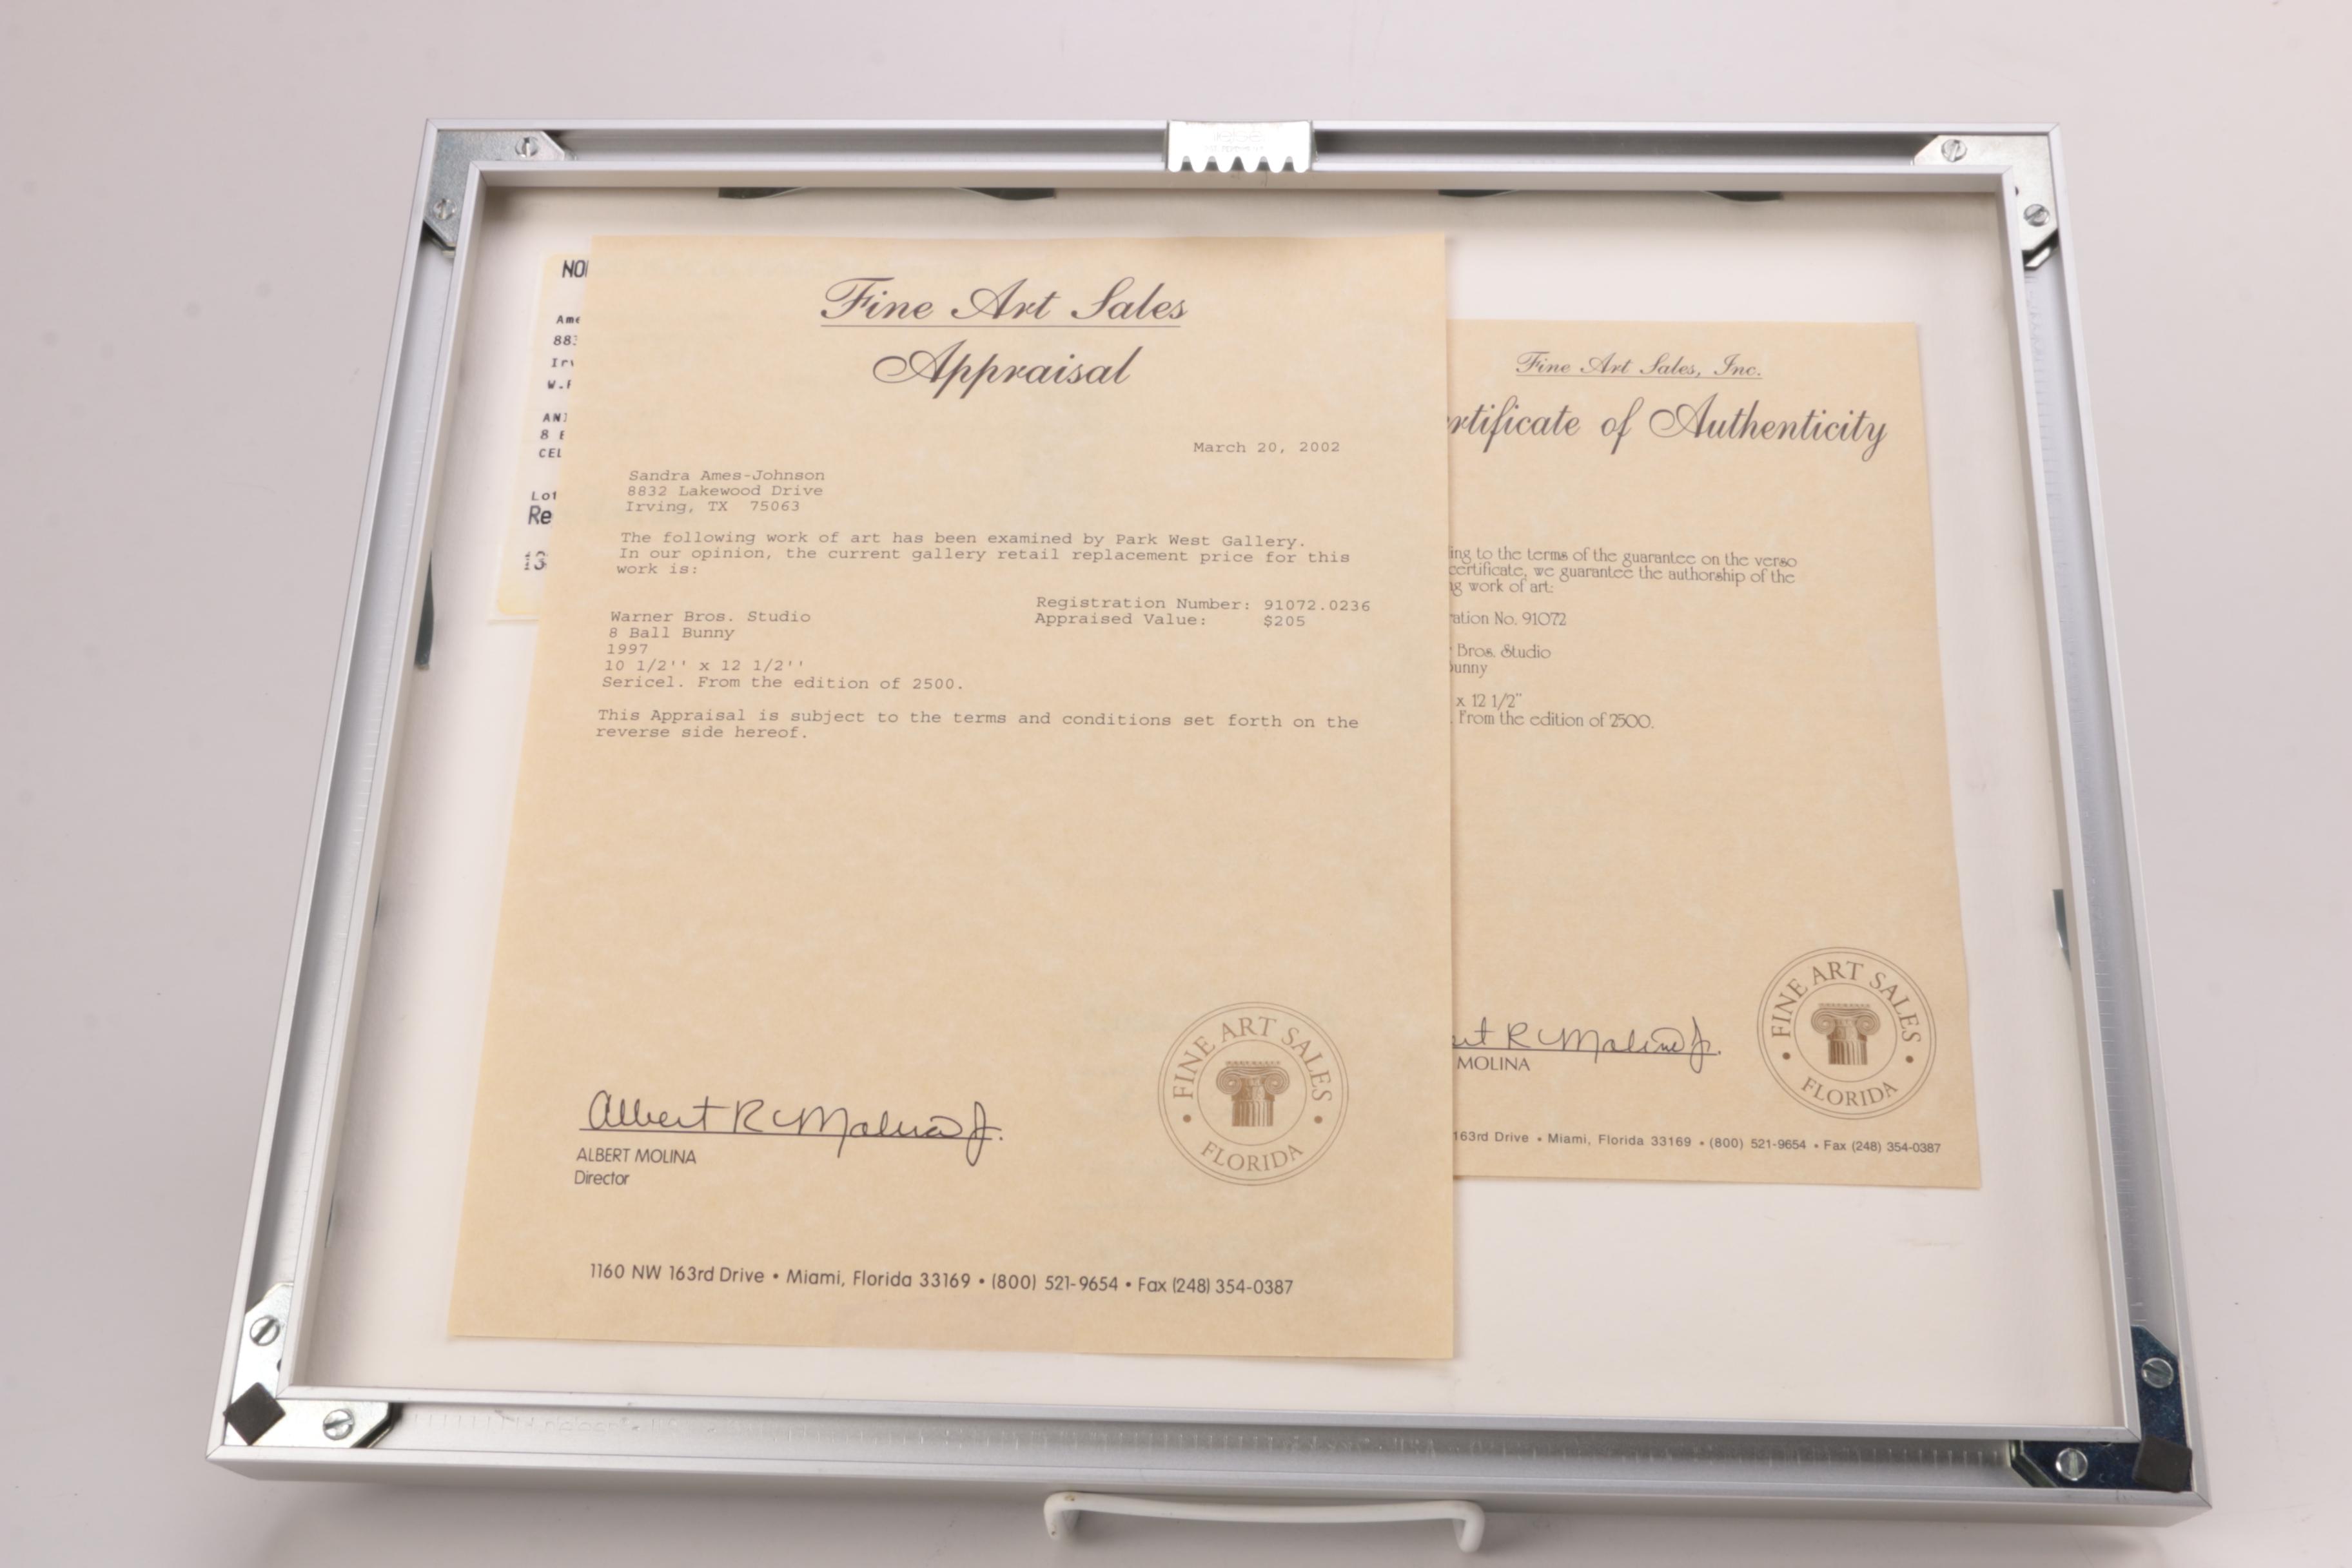 Fine Art Sales
Appraisal
March 20, 2002
Sandra Ames-Johnson
8832 Lakewood Drive
Irving, TX 75063
The following work of art has been examined by Park West Gallery.
In our opinion, the current gallery retail replacement price for this
work is:
Registration Number: 91072.0236
Appraised Value: $205
Warner Bros. Studio
8 Ball Bunny
1997
10 1/2'' x 12 1/2''
Sericel. From the edition of 2500.
This Appraisal is subject to the terms and conditions set forth on the
reverse side hereof.
Albert R Molina Jr.
ALBERT MOLINA
Director
FINE ART SALES
• FLORIDA •
1160 NW 163rd Drive • Miami, Florida 33169 • (800) 521-9654 • Fax (248) 354-0387
Fine Art Sales, Inc.
rtificate of Authenticity
ing to the terms of the guarantee on the verso
certificate, we guarantee the authorship of the
g work of art:
ation No. 91072
Bros. Studio
unny
x 12 1/2"
From the edition of 2500.
rt R Molina Jr.
MOLINA
FINE ART SALES
• FLORIDA •
163rd Drive • Miami, Florida 33169 • (800) 521-9654 • Fax (248) 354-0387
NO
Ame
883
Irv
W.
AN
8
CEL
Lot
Re
13